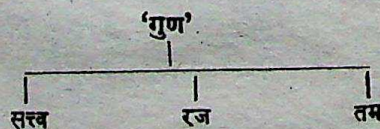 ‘गुण’
सत्त्व रज तम